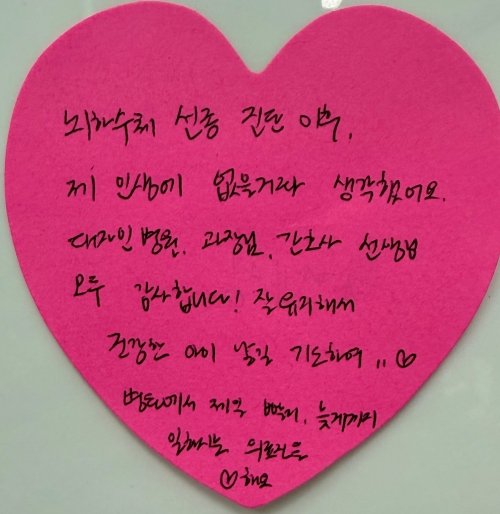 뇌하수체 선종 진단 이후,
제 인생에 없을거라 생각했어요.
대자인 병원, 과장님, 간호사 선생님
모두 감사합니다! 잘 유지해서
건강한 아이 낳길 기도하며 ,, ♡
병원에서 제일 빨리, 늦게까지
일하시는 의료진들
♡해요